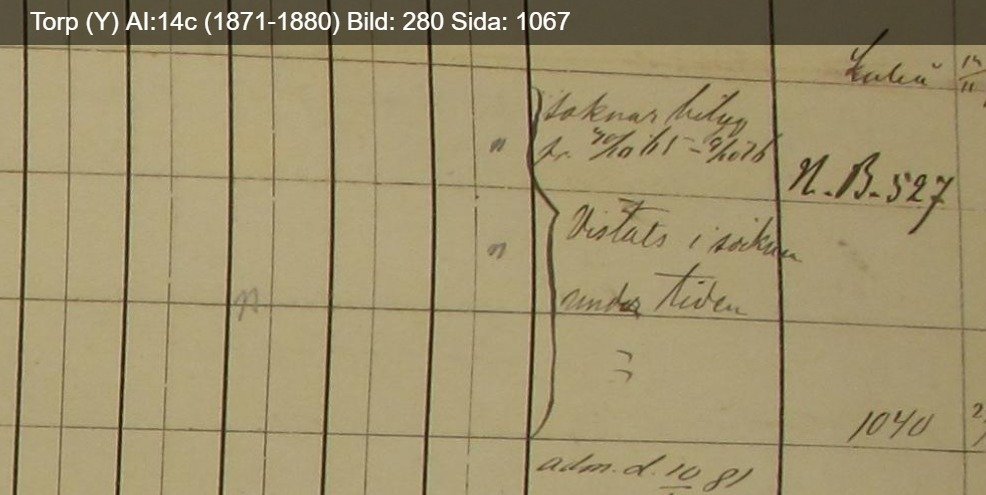 Torp (Y) AI:14c (1871-1880) Bild: 280 Sida: 1067
Luleå 14/11
Saknar betyg
fr. – 76
N. B. 527
Vistats i socknen
under tiden
1040
adm. d. 10 81